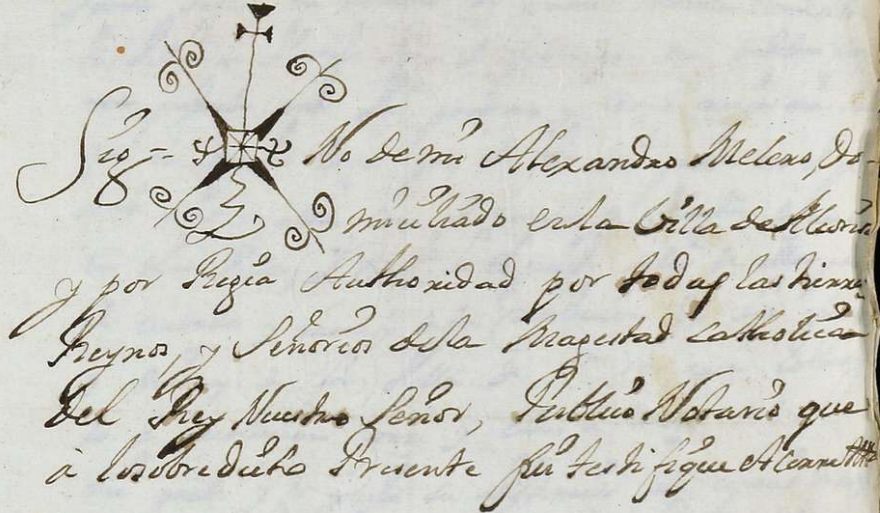 Sig= No de mi Alexandro Melero, do-
miciliado en la Villa de
y por Regia Authoridad por todas las tierras
Reynos, y Señorios de la Magestad Catholica
del Rey Nuestro Señor, Publico Notario que
à lo sobredicho Presente fui testifiqué et cerré